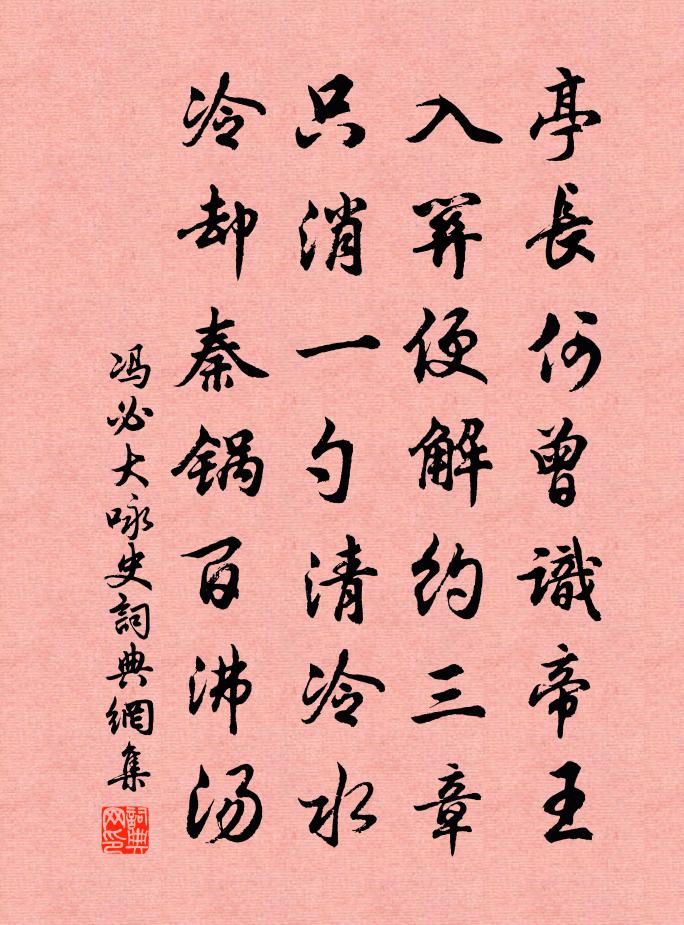 亭長何曾識帝王
入關便解約三章
只消一勺清冷水
冷却秦锅百沸汤
冯必大咏史詞典網集
詞典网印